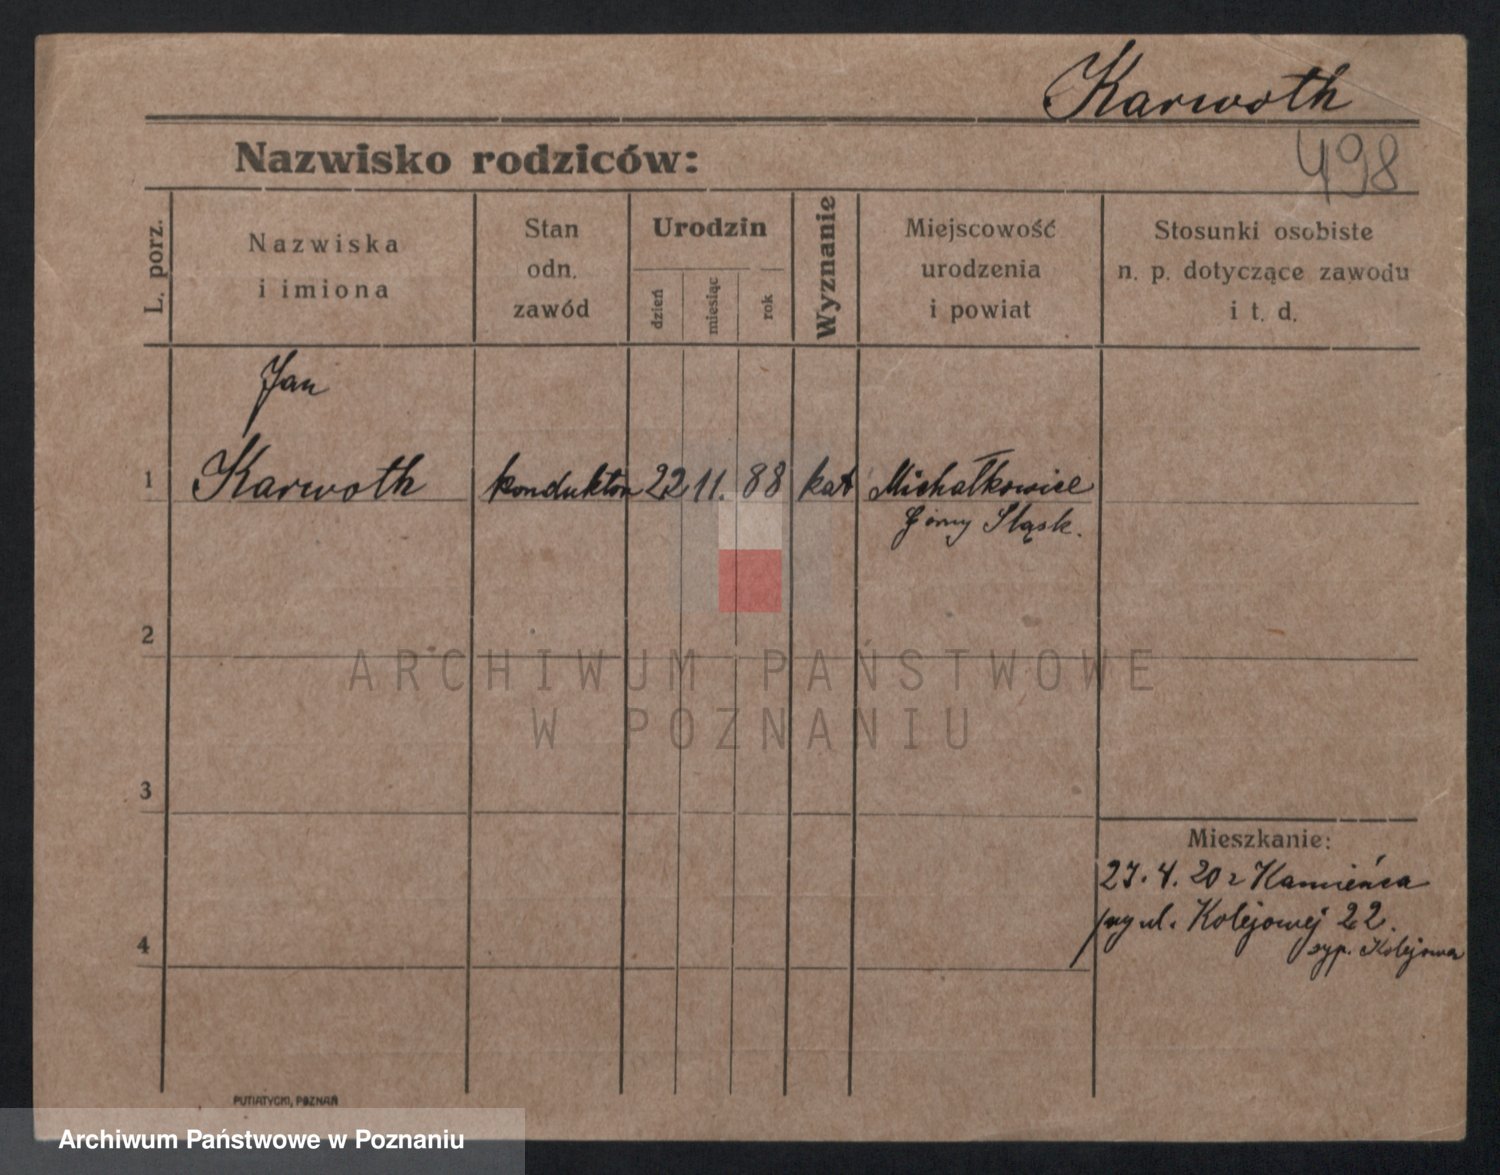 Karwoth
Nazwisko rodziców:
498
L. porz.
Nazwiska
i imiona
Stan
odn.
zawód
Urodzin
dzień
miesiąc
rok
Wyznanie
Miejscowość
urodzenia
i powiat
Stosunki osobiste
n. p. dotyczące zawodu
i t. d.
Jan
1 Karwoth konduktor 22 11. 88 kat Michałkowice
Górny Śląsk.
2
ARCHIWUM PAŃSTWOWE
W POZNANIU
3
Mieszkanie:
27. 4. 20 z Kamieńca
ul. Kolejowej 22.
4
syp. Kolejowa
PUTIATYCKI, POZNAŃ
Archiwum Państwowe w Poznaniu